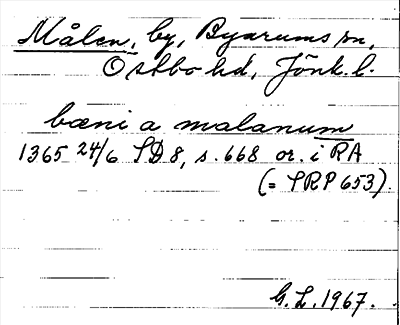 Målen, by, Byarums sn,
Östbo hd, Jönk. l.
bæni a malanum
1365 24/6 SD 8, s. 668 or. i RA
(= SRP 653).
G. L. 1967.